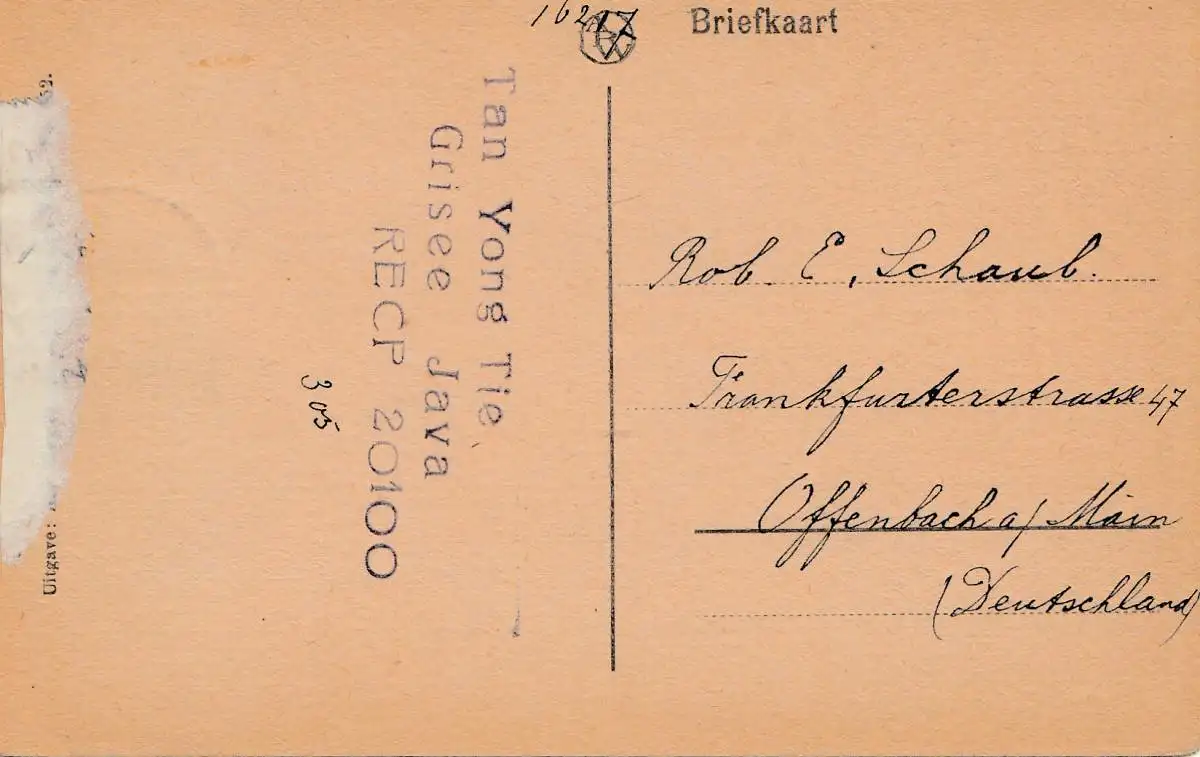 Briefkaart
Rob. E. Schaub.
Frankfurterstrasse 47
Offenbach a/ Main
(Deutschland)
Tan Yong Tie
Grisee Java
RECP 20100
305
Uitgave: